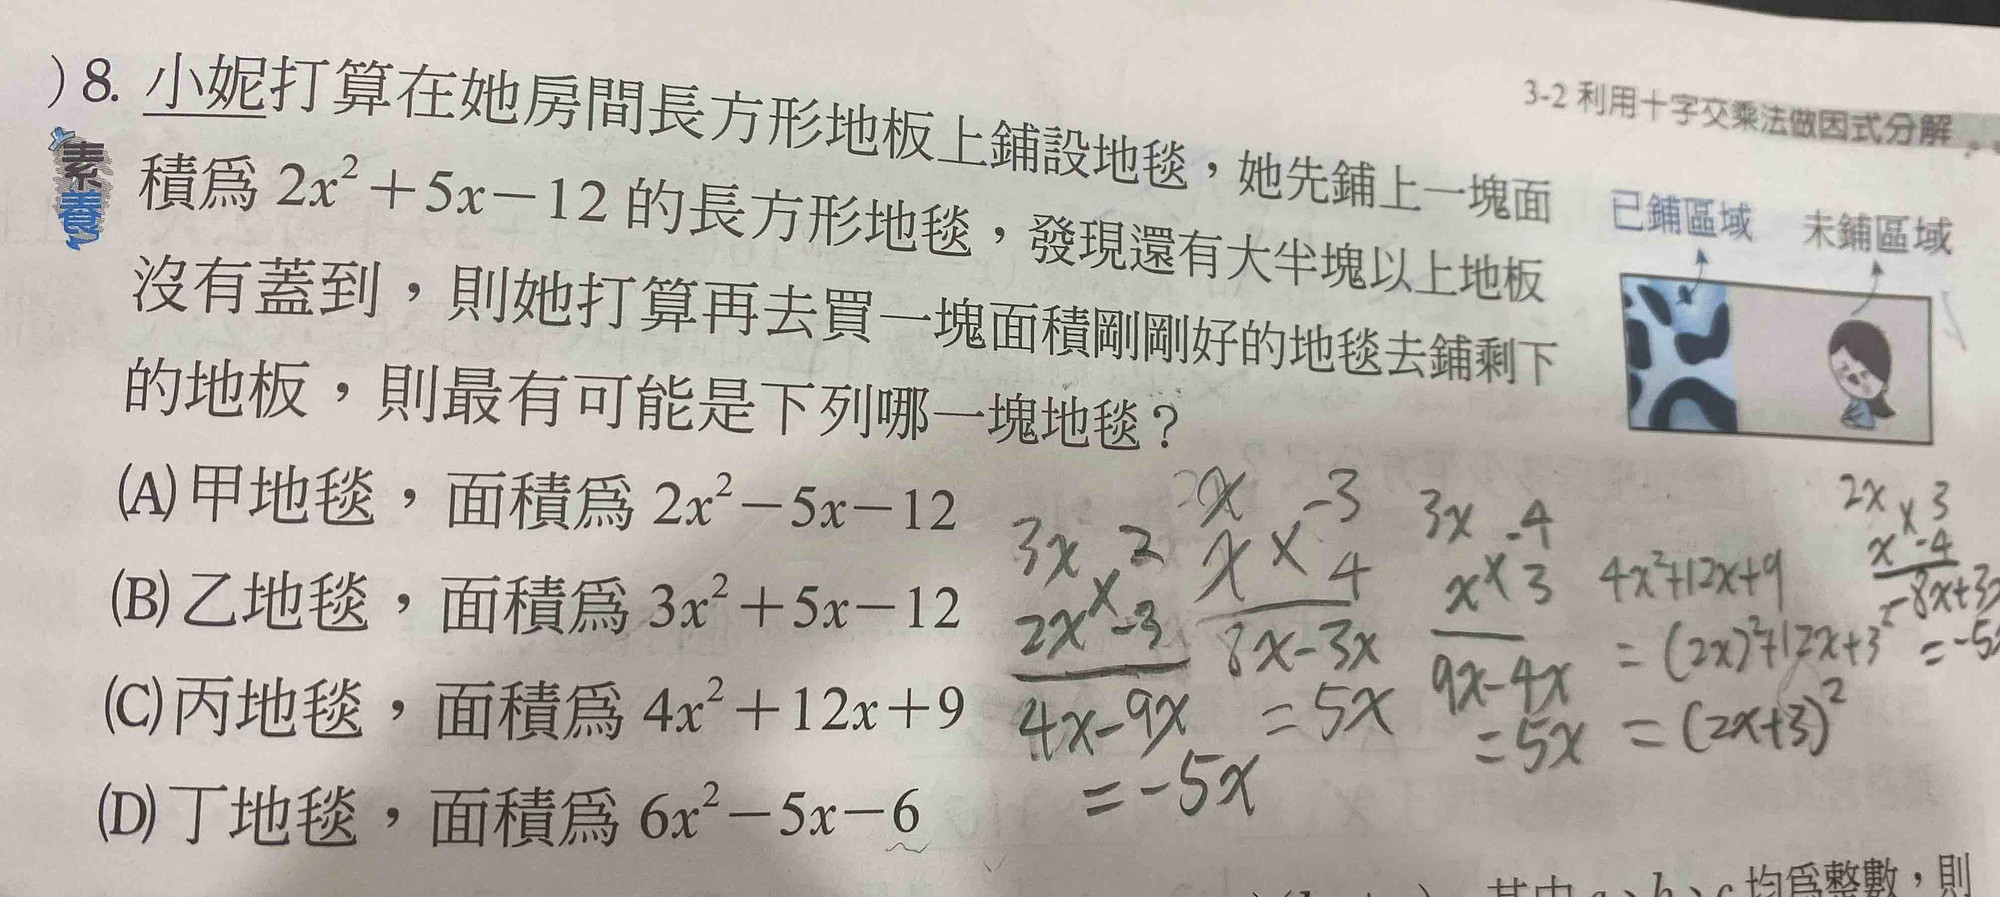 3-2 利用十字交乘法做因式分解
)8. 小妮打算在她房間長方形地板上鋪設地毯，她先鋪上一塊面
素養
積為 2x²+5x-12 的長方形地毯，發現還有大半塊以上地板
沒有蓋到，則她打算再去買一塊面積剛剛好的地毯去鋪剩下
的地板，則最有可能是下列哪一塊地毯？
已鋪區域 未鋪區域
(A)甲地毯，面積為 2x²-5x-12
(B)乙地毯，面積為 3x²+5x-12
(C)丙地毯，面積為 4x²+12x+9
(D)丁地毯，面積為 6x²-5x-6
3x 2
2x × -3
4x-9x
=-5x
2x -3
x × 4
8x-3x
=5x
3x -4
x × 3
9x-4x
=5x
4x²+12x+9
=(2x)²+12x+3²
=(2x+3)²
2x × 3
x -4
-8x+3x
=-5x
均為整數，則